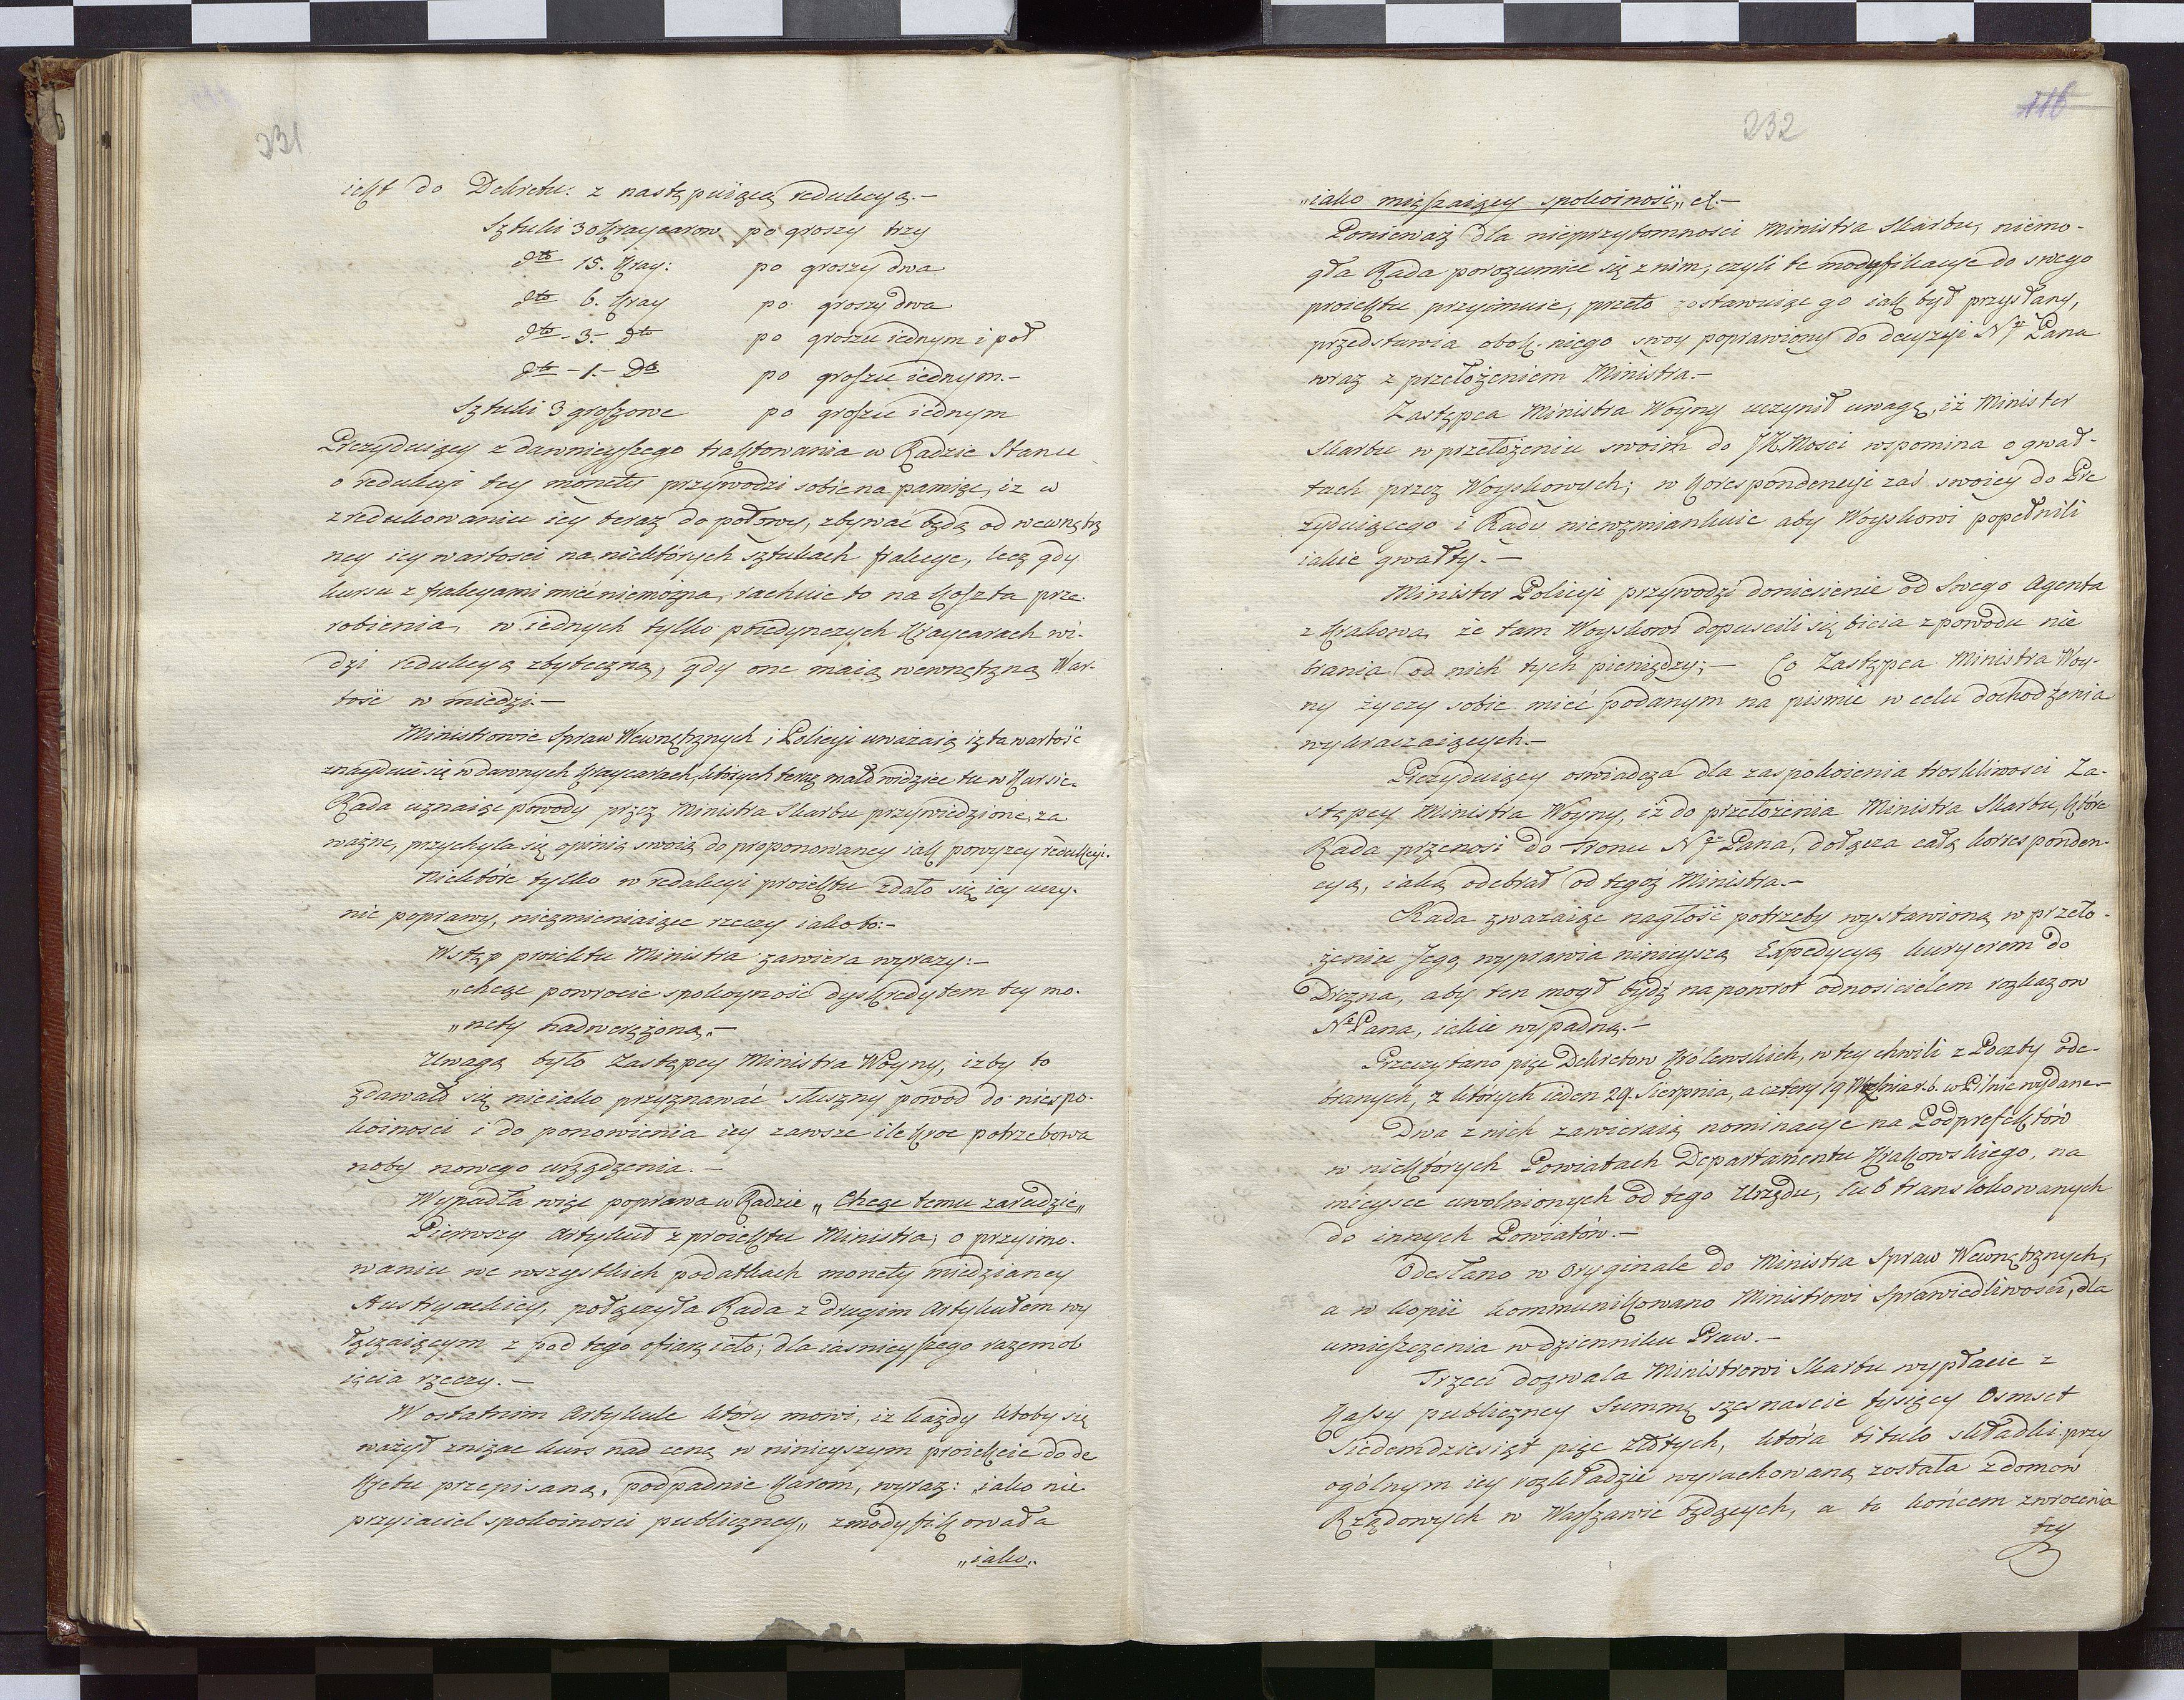 231
iekt do Dekretu: z następuiącą redukcyą.-
Sztuki 30 Kraycarow po groszy trzy
dto 15. Kray: po groszy dwa
dto 6. Kray po groszy dwa
dto - 3.- Dto po groszu iednym i poł
dto - 1.- Dto po groszu iednym.-
Sztuki 3 groszowe po groszu iednym
Prezyduiący z dawnieyszego traktowania w Radzie Stanu
o redukcyi tey monety przywodzi sobie na pamięć, iż w
zredukowaniu iey teraz do połowy, zbywać będą od wewnętrz
ney iey wartosci na niektórych sztukach frakcye, lecz gdy
kursu z frakcyami mieć niemożna, rachuie to na koszta prze-
robienia, w iednych tylko poiedynczych Kraycarach wi-
dzi redukcyą zbyteczną, gdy one maią wewnętrzną War-
tość w miedzi.-
Ministrowie Spraw Wewnętrznych i Policyi uważaią iż ta wartość
znayduie się w dawnych Kraycarach, których teraz mało widzieć tu w Kursie.
Rada uznaiąc powody przez Ministra Skarbu przywiedzione, za
ważne, przychyla się opinią swoią do proponowaney iak powyżey redukcyi.
Niektóre tylko w redakcyi proiektu zdało się iey uczy-
nić poprawy, niezmieniaiące rzeczy iako to:-
Wstęp proiektu Ministra zawiera wyrazy:-
„chcąc powrocić spokoyność dyskredytem tey mo-
„nety nadwerężoną„-
Uwagą było Zastępcy Ministra Woyny, iżby to
zdawało się nieiako przyznawać słuszny powod do niespo-
koiności i do ponowienia iey zawsze ilekroć potrzebowa
noby nowego urządzenia.-
Wypadła więc poprawa w Radzie „Chcąc temu zaradzić„
Pierwszy Artykuł z proiektu Ministra, o przyimo-
waniu we wszystkich podatkach monety miedzianey
Austryackiey, połączyła Rada z drugim Artykułem wy
łączaiącym z pod tego ofiarę ; dla iasnieyszego razem ob
ięcia rzeczy.-
W ostatnim Artykule który mowi, iż każdy ktoby się
ważył zniżać kurs nad cenę w ninieyszym proiekcie do de
kretu przepisaną, podpadnie Karom, wyraz: „iako nie
przyiaciel spokoiności publiczney„ zmodyfikowała
„iako„
232
116
„iako mięszaiący spokoiność„ et.-
Ponieważ dla nieprzytomnosci Ministra Skarbu, niemo-
gła Rada porozumieć się z nim, czyli te modyfikacye do swego
proiektu przyimuie, przeto zostawuiąc go iak był przysłany,
przedstawia obok niego swoy poprawiony do decyzyi Ngo Pana
wraz z przełożeniem Ministra.-
Zastępca Ministra Woyny uczynił uwagę, iż Minister
Skarbu w przełożeniu swoim do JKMości wspomina o gwał-
tach przez Woyskowych; w korespondencyi zaś swoiey do Pre
zyduiącego i Rady niewzmiankuie aby Woyskowi popełnili
iakie gwałty.-
Minister Policyi przywodzi doniesienie od Swego Agenta
z Krakowa, że tam Woyskowi dopuscili się bicia z powodu nie
brania od nich tych pieniędzy;- Co Zastępca Ministra Woy-
ny życzy sobie mieć podanym na pismie w celu dochodzenia
wykraczaiących.-
Prezyduiący oswiadcza dla zaspokoienia troskliwosci Za-
stępcy Ministra Woyny, iż do przełożenia Ministra Skarbu, które
Rada przenosi do Tronu Ngo Pana, dołącza całą korrespon­den-
cyą, iaką odebrał od tegoż Ministra.-
Rada zważaiąc nagłość potrzeby wystawioną w przeło-
żeniu Jego, wyprawia ninieyszą Expedycyą kuryerem do
Drezna, aby ten mogł bydź na powrot odnosicielem rozkazow
Ngo Pana, iakie wypadną.-
Przeczytano pięć Dekretow Królewskich, w tey chwili z Poczty ode-
branych, z których ieden 29. Sierpnia, a cztery 19 Września r. b. w Pilnic wydane.-
Dwa z nich zawieraią nominacye na Podprefektów
w niektórych Powiatach Departamentu Krakowskiego, na
mieysce uwolnionych od tego Urzędu, lub translokowanych
do innych Powiatów.-
Odesłano w Oryginale do Ministra Spraw Wewnętrznych,
a w kopii kommunikowano Ministrowi Sprawiedliwosci, dla
umieszczenia w dzienniku Praw.-
Trzeci dozwala Ministrowi Skarbu wypłacić z
Kassy publiczney Summę szesnascie tysięcy Osmset
Siedemdziesiąt pięć złotych, która titulo składki przy
ogólnym iey rozkładzie wyrachowaną została z domow
Rządowych w Warszawie będących, a to końcem zwrocenia
tey